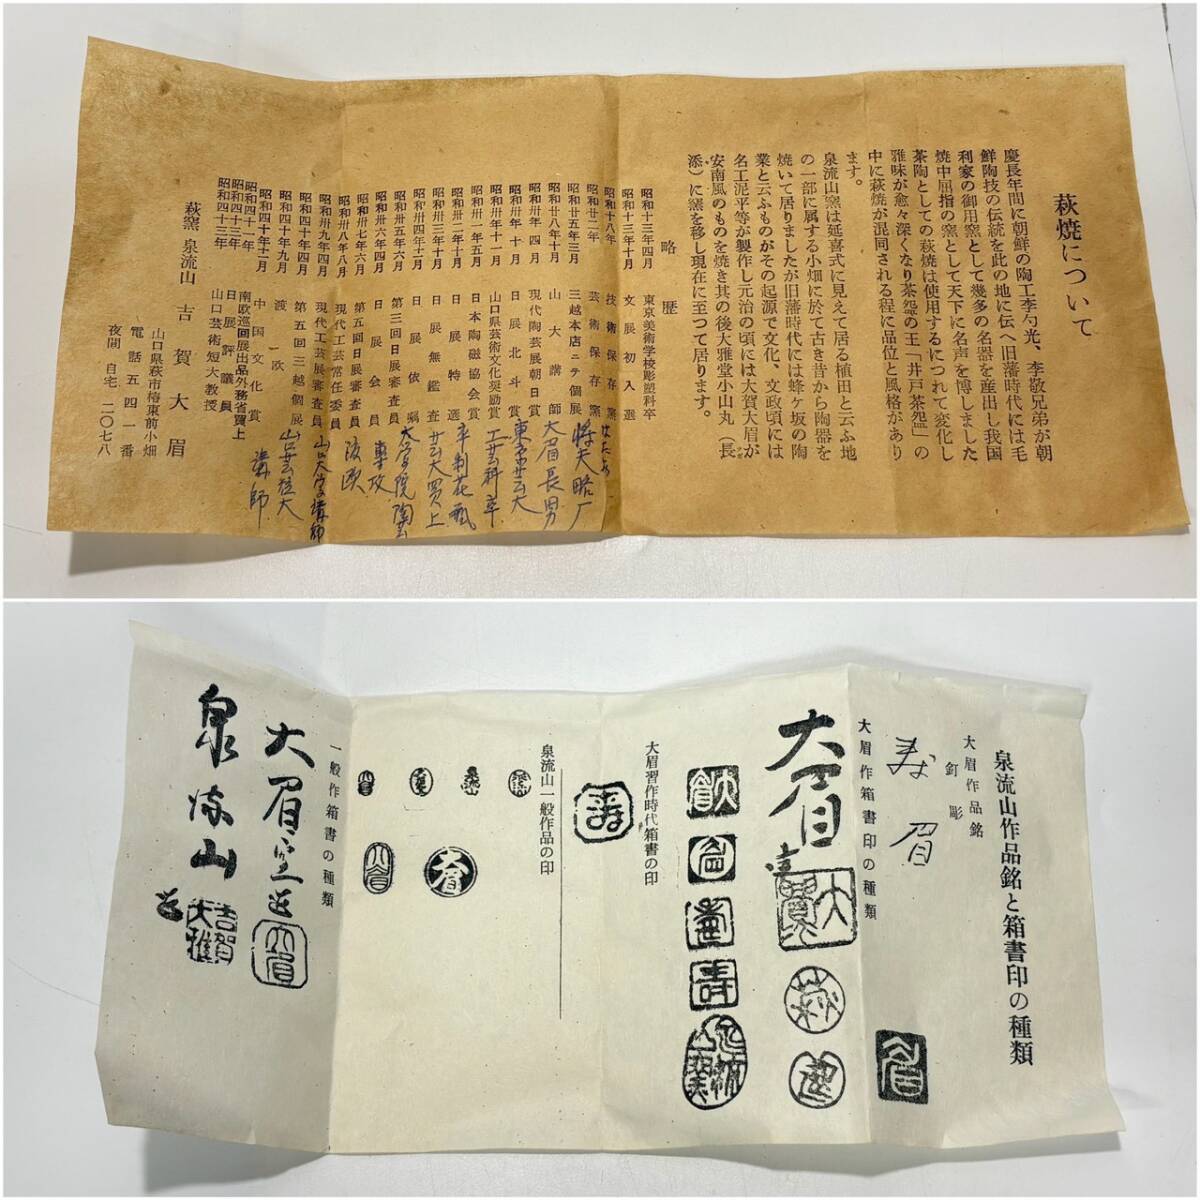 萩焼について
慶長年間に朝鮮の陶工李勺光、李敬兄弟が朝
鮮陶技の伝統を此の地に伝へ旧藩時代には毛
利家の御用窯として幾多の名器を産出し我国
焼中屈指の窯として天下に名声を博しました
茶陶としての萩焼は使用するにつれて変化し
雅味が愈々深くなり茶盌の王「井戸茶盌」の
中に萩焼が混同される程に品位と風格があり
ます。
泉流山窯は延喜式に見えて居る植田と云ふ地
の一部に属する小畑に於て古き昔から陶器を
焼いて居りましたが旧藩時代には蜂ヶ坂の陶
業と云ふものがその起源で文化、文政頃には
名工泥平等が製作し元治の頃には大賀大眉が
安南風のものを焼き其の後大雅堂小山丸(長
添)に窯を移し現在に至つて居ります。
略歴
昭和十三年四月 東京美術学校彫塑科卒
昭和十三年十月 文展初入選
昭和十八年 技術保存窯
昭和廿二年 芸術保存窯
昭和廿五年三月 三越本店ニテ個展
昭和廿八年十月 山大講師
昭和卅年四月 現代陶芸展朝日賞
昭和卅年十月 日展北斗賞
昭和卅一年十一月 山口県芸術文化奨励賞
昭和卅一年五月 日本陶磁協会賞
昭和卅二年十一月 日展特選
昭和卅三年十月 日展無鑑査
昭和卅四年十月 日展依嘱
昭和卅五年六月 第三回日展審査員
昭和卅六年四月 日展会員
昭和卅七年六月 第五回日展審査員
昭和卅八年八月 現代工芸常任委員
昭和卅九年四月 現代工芸展審査員
昭和四十年四月 第五回三越個展
昭和四十年九月 渡欧
昭和四十年十一月 中国文化賞
昭和四十一年 南欧巡回展出品外務省買上
昭和四十三年 日展評議員
昭和四十三年 山口芸術短大教授
将夫略厂
大眉長男
東京芸大
工芸科卒
卒制花瓶
芸大買上
大学院陶芸
専攻
渡欧
山口大学講師
山口芸短大
講師
萩窯 泉流山 吉賀大眉
山口県萩市椿東前小畑
電話五四一番
夜間 自宅 二〇七八
泉流山作品銘と箱書印の種類
大眉作品銘
釘彫
寿
眉
眉
大眉作箱書印の種類
大眉
造
萩
大眉習作時代箱書の印
寿
泉流山一般作品の印
大眉
一般作箱書の種類
大眉窯造
泉流山
吉賀
大雅